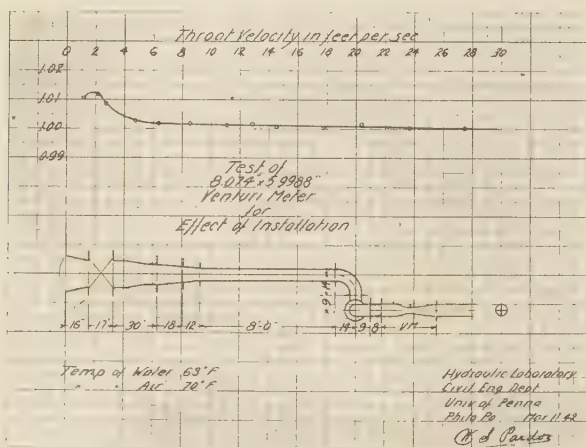 Throat Velocity in feet per sec
0 2 4 6 8 10 12 14 16 18 20 22 24 26 28 30
1.02
1.01
1.00
0.99
Test of
8.074" x 5.9988"
Venturi Meter
for
Effect of Installation
16" 17" 30" 18 12 8'-0" 14 9 8 VM
Temp of Water 69°F
" " Air 70°F
Hydraulic Laboratory
Civil Eng Dept
Univ of Penna
Phila Pa Mar 11 42
W S Pardoe